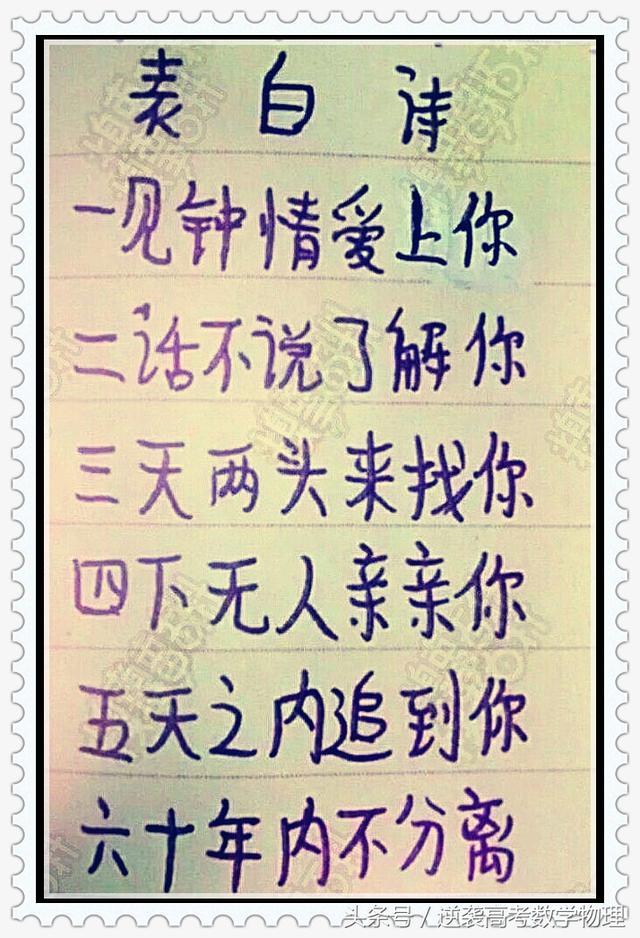 表白诗
一见钟情爱上你
二话不说了解你
三天两头来找你
四下无人亲亲你
五天之内追到你
六十年内不分离
头条号／逆袭高考数学物理